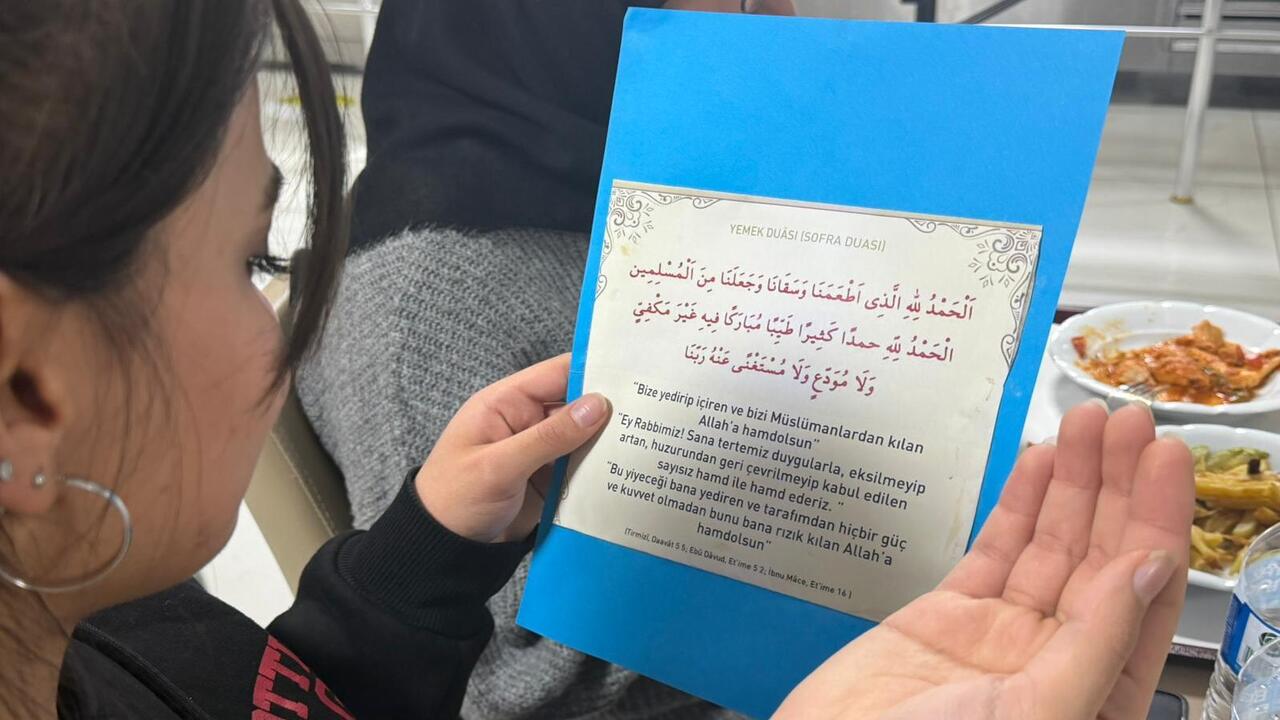 YEMEK DUÂSI (SOFRA DUASI)
اَلْحَمْدُ لِلّٰهِ الَّذِى اَطْعَمَنَا وَسَقَانَا وَجَعَلَنَا مِنَ الْمُسْلِمِين
الْحَمْدُ لِلّٰهِ حمدًا كَثِيرًا طَيِّبًا مُبَارَكًا فِيهِ غَيْرَ مَكْفِيٍّ
وَلَا مُوَدَّعٍ وَلَا مُسْتَغْنًى عَنْهُ رَبَّنَا
"Bize yedirip içiren ve bizi Müslümanlardan kılan
Allah'a hamdolsun"
"Ey Rabbimiz! Sana tertemiz duygularla, eksilmeyip
artan, huzurundan geri çevrilmeyip kabul edilen
sayısız hamd ile hamd ederiz. "
"Bu yiyeceği bana yediren ve tarafımdan hiçbir güç
ve kuvvet olmadan bunu bana rızık kılan Allah'a
hamdolsun"
(Tirmizî, Daavât 5 5; Ebû Dâvud, Et'ime 5 2; İbnu Mâce, Et'ime 16 )